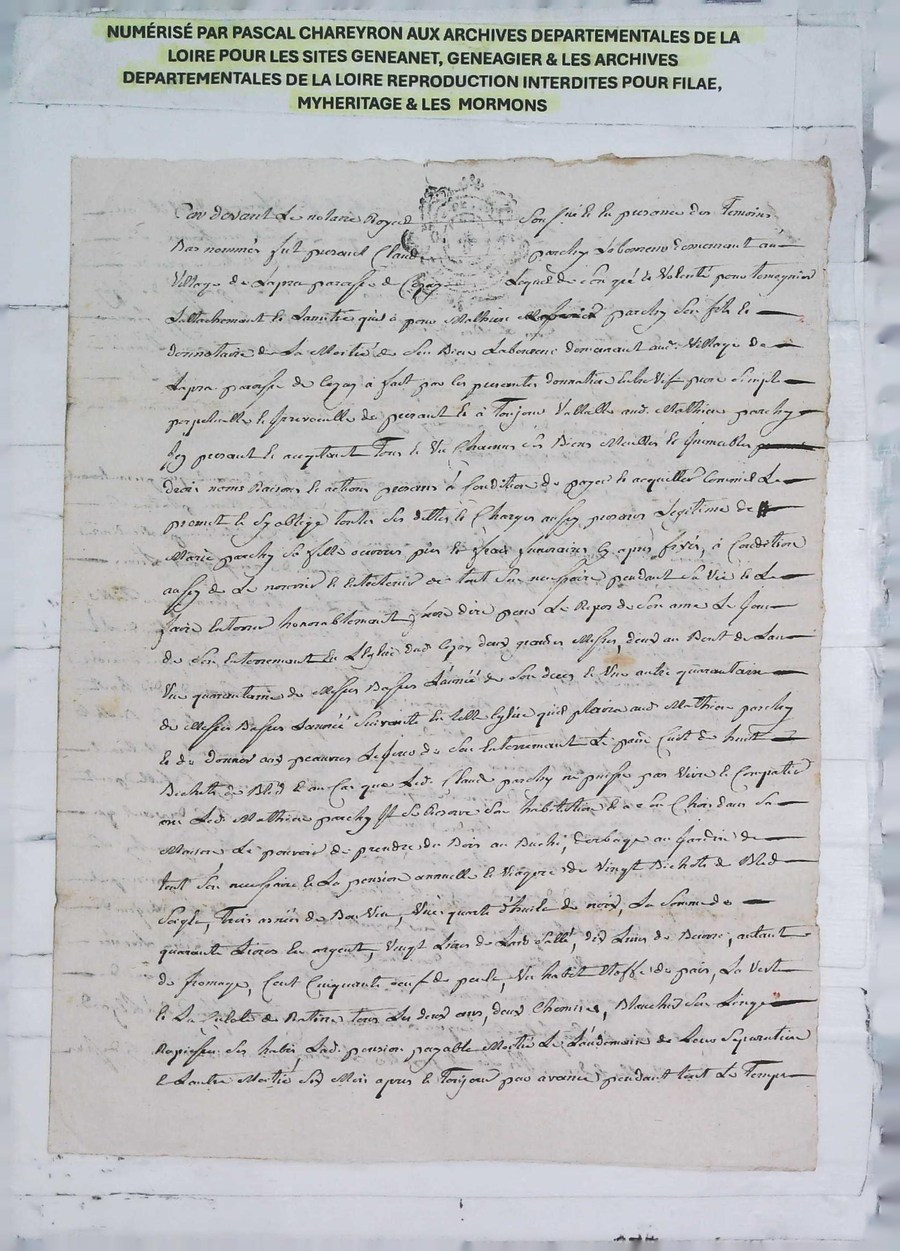 NUMÉRISÉ PAR PASCAL CHAREYRON AUX ARCHIVES DEPARTEMENTALES DE LA
LOIRE POUR LES SITES GENEANET, GENEAGIER & LES ARCHIVES
DEPARTEMENTALES DE LA LOIRE REPRODUCTION INTERDITES POUR FILAE,
MYHERITAGE & LES MORMONS
Par devant Le notaire Royal Soussigné Et En presance des Temoins
Bas nommés fut presant Claude parchy Laboureur demeurant au
Village de Lapra paroisse de Cezay Lequel de son gré Et Volonté pour temoignier
Lattachement Et Lamitié qu'il à pour Mathieu parchy Son fils Et
donnataire de La Moitié de Ses Biens Laboureur demeurant aud. Village de
Lapra paroisse de Cezay à fait par Les presentes donnation Entre Vif pure Simple
perpetuelle Et Irrevocable des presant Et à Toujour Vallable aud. Mathieu parchy
Icy presant Et acceptant Tous Et Un Chacuns Ses Biens Meubles Et Immeubles
drois noms Raisons Et actions presens à Condition de payer Et acquitter Comme il Le
promet Et Sy oblige toutes Ses dettes Et Charges aussy presens Legitime de
Marie parchy Sa fille Et frais funeraires Cy apres fixés, à Condition
aussy de Le nourrir Et Entretenir de tout Son necessaire pendant Sa Vie Et Le
faire Enterrer honorablement faire dire pour Le Repos de Son ame Le Jour
de Son Enterrement En L'Eglise dud. Cezay deux grandes Messes, deux au Bout de Lan
Une quarantaine de Messes Basses L'année de Son deces Et Une autre quarantaine
de Messes Basses L'année Suivante En telle Eglise quil plaira aud. Mathieu parchy
Et de donner aux peauvres Le Jour de Son Enterrement Le pain Cuit de huit
Bichets de Bled Et au Cas que Led. Claude parchy ne puisse pas Vivre Et Compatir
avec Led. Mathieu parchy Il Se Reserve Son habitation à Son Choix dans Sa
Maison Le pouvoir de prendre du Bois au Buché, herbage au Jardin de
tout Son necessaire Et La pension annuelle Et Viagere de Vingt Bichets de Bled
Seigle, Trois anées de Bon Vin, Une quarte d'huile de noix, La Somme de
quarante Livres En argent, Vingt Livres de Lard Sallé, dix Livres de Beurre, autant
de fromage, Cent Cinquante oeuf de poule, Un habit Etoffe de païs, La Veste
Et La Culote de Ratine tous Les deux ans, deux Chemises, Blanchir Son Linge
Rapiesser Ses habits, Lad. pension payable Moitié Le Landemain de Leur Separation
Et Lautre Moitié Six Mois apres Et Toujour par avance pendant tout Le Temps